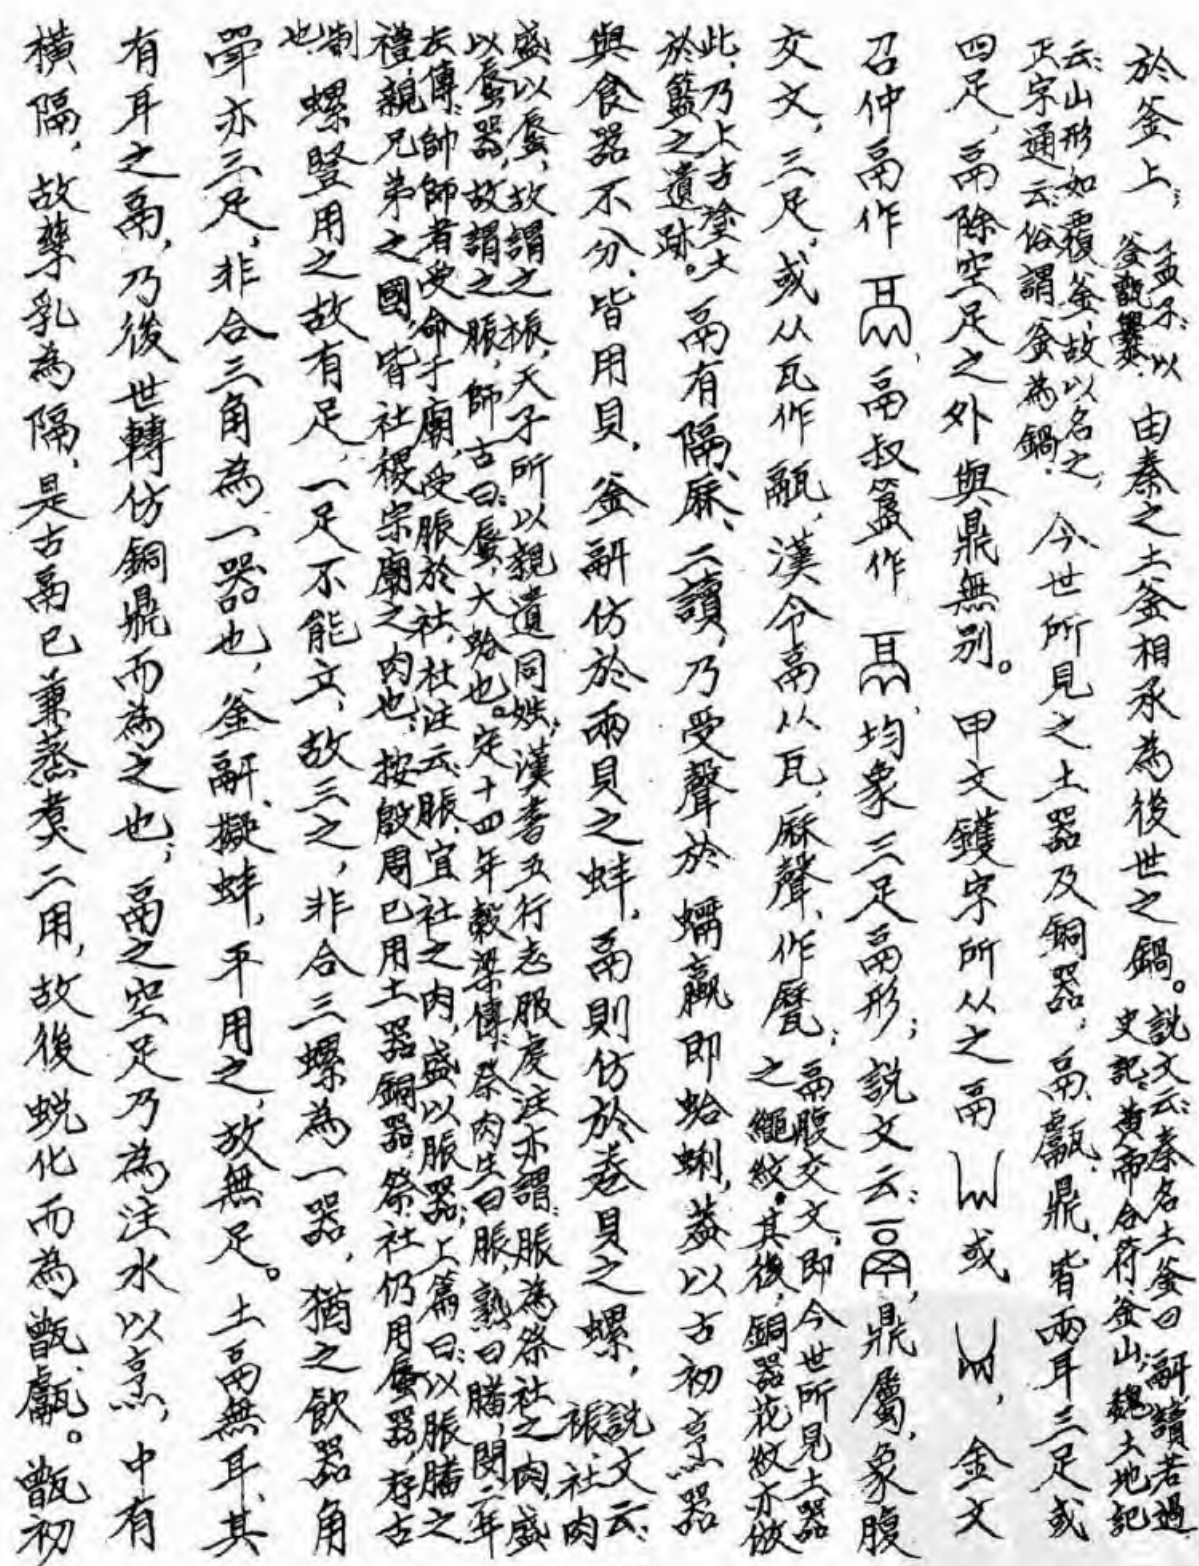 於釜上；孟子：以釜甑爨。由秦之土釜相承為後世之鍋。說文云：秦名土釜曰䰛，讀若過。史記：黃帝合符釜山；魏土地記
云：山形如覆釜，故以名之，正字通云：俗謂釜為鍋。今世所見之土器及銅器；鬲、甗、鼎，皆兩耳三足或
四足，鬲除空足之外與鼎無別。甲文鑊字所从之鬲或，金文
召仲鬲作，鬲叔簋作，均象三足鬲形；說文云：鼎屬，象腹
交文，三足，或从瓦作㽁，漢令鬲从瓦，厤聲，作䰛；鬲腹交文，即今世所見土器之繩紋。其後，銅器花紋亦倣
此，乃上古塗土於籃之遺跡。鬲有隔、厤、二讀，乃受聲於蠣蠃即蛤蜊，蓋以古初烹器
與食器不分，皆用貝，釜䰛仿於兩貝之蚌，鬲則仿於卷貝之螺，說文云：祳，社肉
盛以蜃，故謂之祳，天子所以親遺同姓；漢書五行志服虔注亦謂：脤為祭社之肉，盛
以蜃器，故謂之脤，師古曰：蜃，大蛤也。定十四年穀梁傳：祭肉生曰脤，熟曰膰，閔二年
左傳：帥師者受命于廟，受脤於社，杜注云：脤，宜社之肉，盛以脤器；上篇曰：以脤膰之
禮，親兄弟之國，皆社稷宗廟之肉也，按殷周已用土器銅器，祭社仍用蜃器，存古
制也。螺豎用之故有足，一足不能立，故三之，非合三螺為一器，猶之飲器角
斝亦三足，非合三角為一器也，釜䰛、擬蚌，平用之，故無足。土鬲無耳，其
有耳之鬲，乃後世轉仿銅鼎而為之也；鬲之空足乃為注水以烹，中有
橫隔，故孳乳為隔，是古鬲已兼蒸煮二用，故後蛻化而為甑、甗。甑初